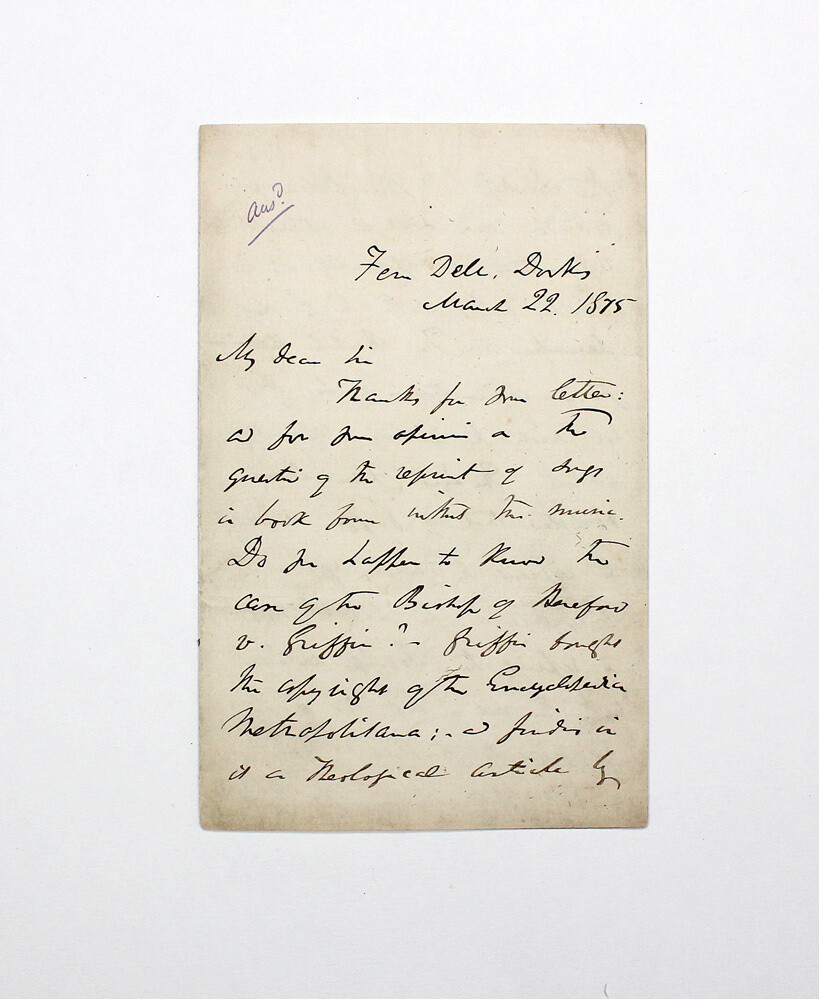 Ansd.
Fern Dell. Dorking
March 22. 1875
My dear Sir
Thanks for your letter:
and for your opinion on the
question of the reprint of songs
in book form without the music.
Do you happen to know the
case of the Bishop of Hereford
v. Griffin? - Griffin bought
the copyright of the Encyclopædia
Metropolitana; - and finding in
it a Theological article by